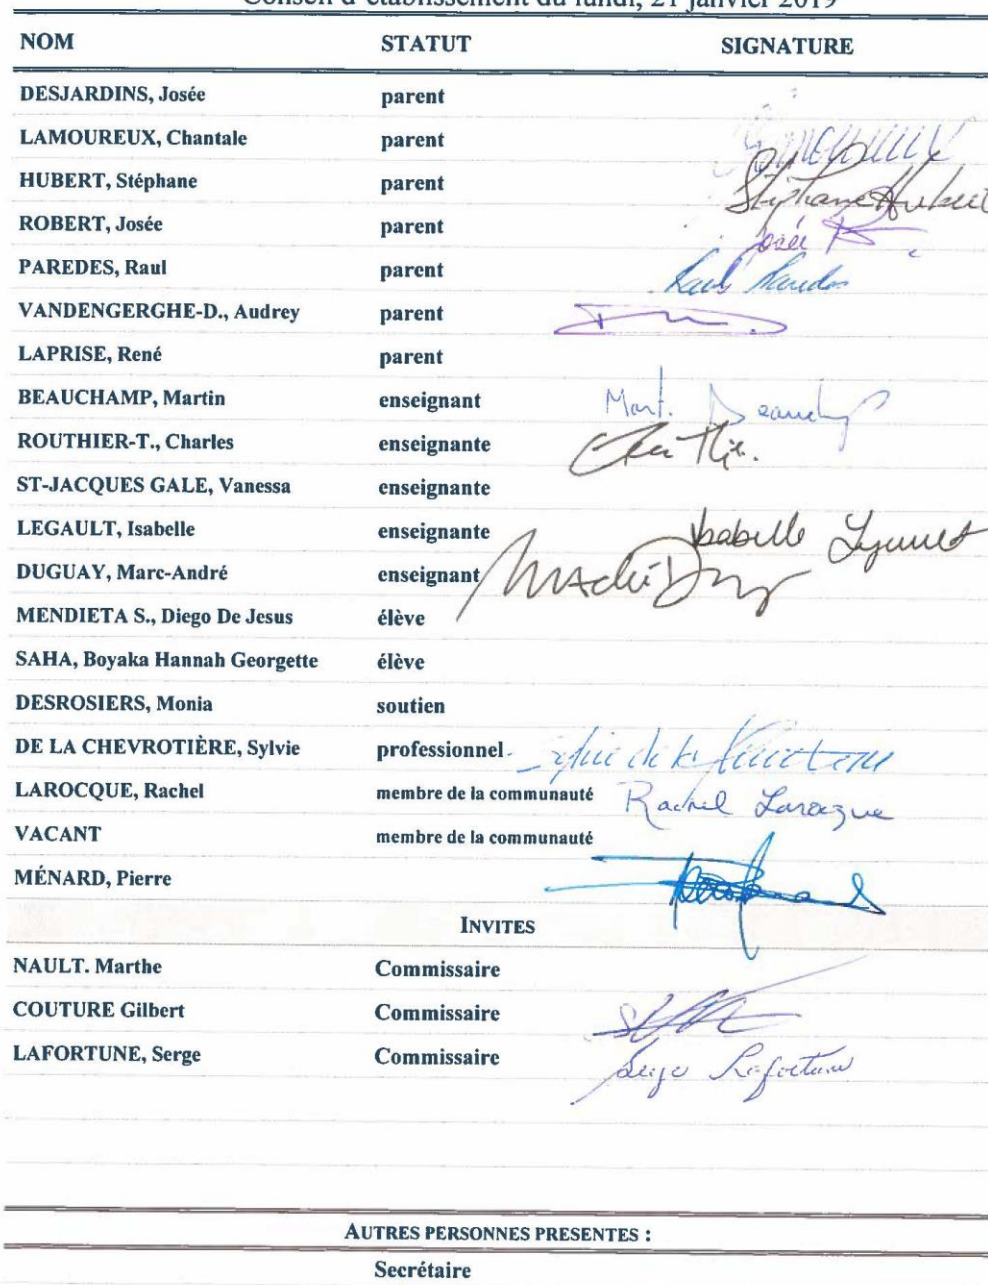 Conseil d'établissement du lundi, 21 janvier 2019
NOM STATUT SIGNATURE
DESJARDINS, Josée parent
LAMOUREUX, Chantale parent
HUBERT, Stéphane parent Stéphane Hubert
ROBERT, Josée parent Josée R
PAREDES, Raul parent Raul Paredes
VANDENGERGHE-D., Audrey parent
LAPRISE, René parent
BEAUCHAMP, Martin enseignant Mart. Beauchamp
ROUTHIER-T., Charles enseignante
ST-JACQUES GALE, Vanessa enseignante
LEGAULT, Isabelle enseignante Isabelle
DUGUAY, Marc-André enseignant
MENDIETA S., Diego De Jesus élève
SAHA, Boyaka Hannah Georgette élève
DESROSIERS, Monia soutien
DE LA CHEVROTIÈRE, Sylvie professionnel Sylvie de la
LAROCQUE, Rachel membre de la communauté Rachel Larocque
VACANT membre de la communauté
MÉNARD, Pierre
INVITES
NAULT. Marthe Commissaire
COUTURE Gilbert Commissaire
LAFORTUNE, Serge Commissaire Serge Lafortune
AUTRES PERSONNES PRESENTES :
Secrétaire